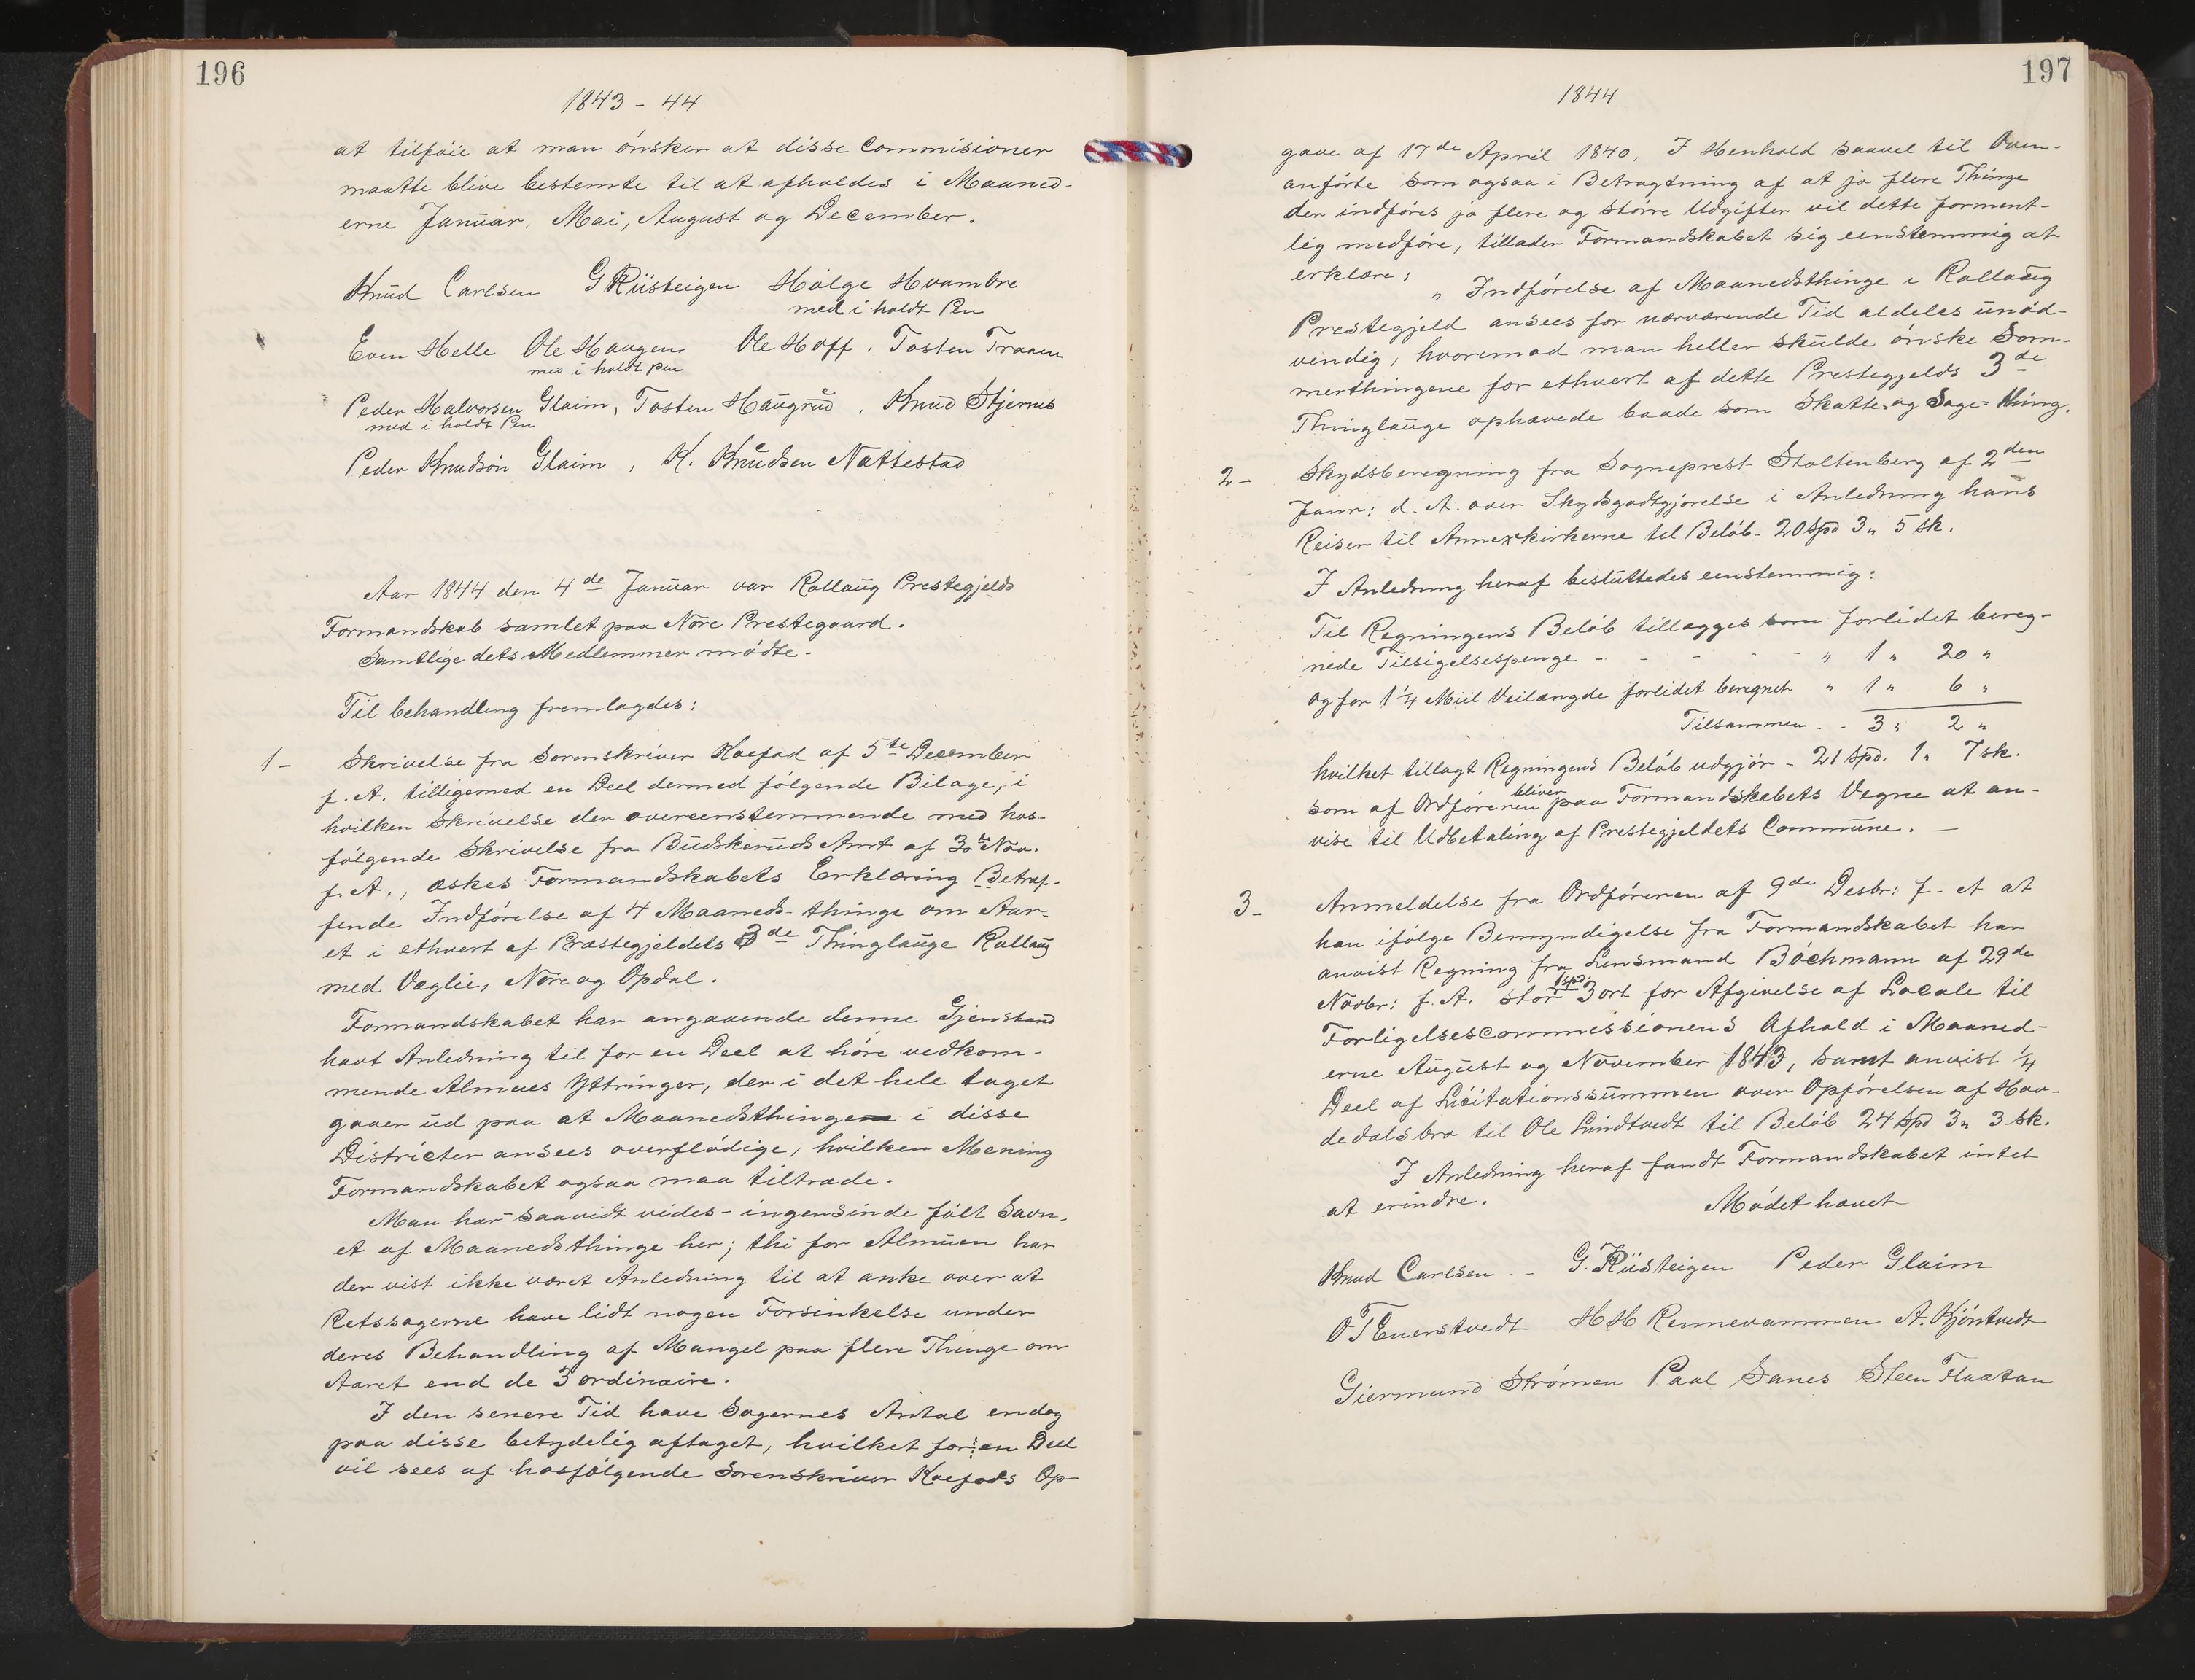 196
1843 - 44
at tilføie at man ønsker at disse Commisioner
maatte blive bestemte til at afholdes i Maaned-
erne Januar, Mai, August og December.
Knud Carlsen G Rüsteigen Holge Hvambre
med i holdt Pen
Even Helle Ole Haugen Ole Hoff, Tosten Traaen
med i holdt pen
Peder Halvorsen Glaim, Tosten Haugrud, Knud Stjernes
med i holdt Pen
Peder Knudsøn Glaim, K. Knudsen Nattestad
Aar 1844 den 4de Januar var Rollaug Prestegjelds
Formandskab samlet paa Nore Prestegaard.
Samtlige dets Medlemmer mødte.
Til behandling fremlagdes:
1- Skrivelse fra Sorenskriver Koefod af 5te December
f. A. tilligemed en Deel dermed følgende Bilage, i
hvilken Skrivelse der overeenstemmende med hos-
følgende Skrivelse fra Buskeruds Amt af 30te Nov.
f. A., æskes Formandskabets Erklæring Betræf-
fende Indførelse af 4 Maaneds-thinge om Aar-
et i ethvert af Præstegjeldets 3de Thinglauge Rollaug
med Væglie, Nore og Opdal.
Formandskabet har angaaende denne Gjenstand
havt Anledning til for en Deel at høre vedkom-
mende Almues Yttringer, der i det hele taget
gaaer ud paa at Maanedsthingene i disse
Districter ansees overflødige, hvilken Mening
Formandskabet ogsaa maa tiltræde.
Man har saavidt vides - ingensinde følt Savn-
et af Maanedsthinge her; thi for Almuen har
der vist ikke været Anledning til at anke over at
Retssagerne have lidt nogen Forsinkelse under
deres Behandling af Mangel paa flere Thinge om
Aaret end de 3 ordinaire.
I den senere Tid have Sagernes Antal endog
paa disse betydelig aftaget, hvilket for en Deel
vil sees af hosfølgende Sorenskriver Koefods Op-
197
1844
gave af 17de April 1840. I Henhold saavel til Oven-
anførte som ogsaa i Betragtning af at jo flere Thinge
der indføres jo flere og større Udgifter vil dette forment-
lig medføre, tillader Formandskabet sig eenstemmig at
erklære:
„ Indførelse af Maanedsthinge i Rollaug
Prestegjeld ansees for nærværende Tid aldeles unød-
vendig, hvorimod man heller skulde ønske Som-
merthingene for ethvert af dette Prestegjelds 3de
Thinglauge ophævede baade som Skatte- og Sage-thing.
2- Skydsberegning fra Sogneprest Stoltenberg af 2den
Janr: d. A. over Skydsgodtgjørelse i Anledning hans
Reiser til Annexkirkerne til Beløb - 20 spd 3„ 5 sk.
I Anledning heraf besluttedes eenstemmig:
Til Regningens Beløb tillægges som forlidet bereg-
nede Tilsigelsespenge - - - - - „ 1 „ 20 „
og for 1 1/4 Miil Veilængde forlidet beregnet „ 1 „ 6 „
Tilsammen - - 3 „ 2 „
hvilket tillagt Regningens Beløb udgjør - 21 spd. 1„ 7 sk.
bliver
som af Ordføreren paa Formandskabets Vegne at an-
vise til Udbetaling af Prestegjeldets Commune. -
3- Anmeldelse fra Ordføreren af 9de Desbr: f. A at
han ifølge Bemyndigelse fra Formandskabet har
anvist Regning fra Lensmand Bøchmann af 29de
1 spd
Novbr: f. A. stor 3 ort for Afgivelse af Locale til
Forligelsescommissionens Afhold i Maaned-
erne August og November 1843, samt anvist 1/4
Deel af Licitationssummen over Opførelsen af Hov-
dedalsbro til Ole Lindtvedt til Beløb 24 spd 3„ 3 sk.
I Anledning heraf fandt Formandskabet intet
at erindre. Mødet hævet
Knud Carlsen - G. Rüsteigen Peder Glaim
O T Enerstvedt H H Rennevammen A. Kjøntvedt
Giermund Strømen Paal Sanes Steen Flaatan